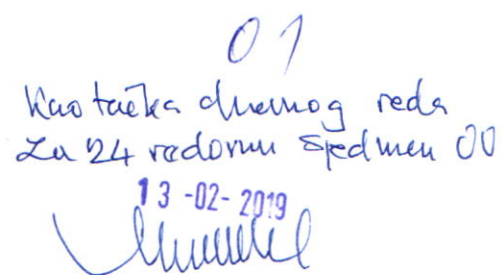 01
Kao tačka dnevnog reda
Za 24 redovnu sjednicu OO
13 -02- 2019